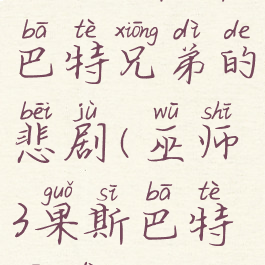 bā tè xiōng dì de
巴特兄弟的
bēi jù wū shī
悲剧(巫师
guǒ sī bā tè
3果斯巴特